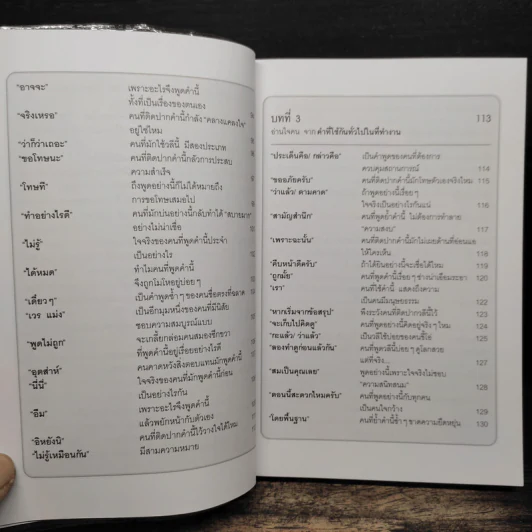 "อาจจะ" เพราะอะไรจึงพูดคำนี้
ทั้งที่เป็นเรื่องของตนเอง
"จริงเหรอ" คนที่ติดปากคำนี้กำลัง "คลางแคลงใจ"
อยู่ใช่ไหม
"ว่าก็ว่าเถอะ" คนที่มักใช้วลีนี้ มีสองประเภท
"ขอโทษนะ" คนที่ติดปากคำนี้กลัวการประสบ
ความสำเร็จ
"โทษที" ถึงพูดอย่างนี้ก็ไม่ได้หมายถึง
การขอโทษเสมอไป
"ทำอย่างไรดี" คนที่มักบ่นอย่างนี้กลับทำได้ "สบายมาก"
อย่างไม่น่าเชื่อ
"ไม่รู้" ใจจริงของคนที่พูดคำนี้ประจำ
เป็นอย่างไร
"ได้หมด" ทำไมคนที่พูดคำนี้
จึงถูกโมโหอยู่บ่อยๆ
"เดี๋ยวๆ" เป็นคำพูดซ้ำๆ ของคนซื่อตรงที่ฉลาด
"เวร แม่ง" เป็นอีกมุมหนึ่งของคนที่มีนิสัย
ชอบความสมบูรณ์แบบ
"พูดไม่ถูก" จะเกลี้ยกล่อมคนสมองซีกขวา
ที่พูดคำนี้อยู่เรื่อยอย่างไรดี
"อุตส่าห์" คนคาดหวังสิ่งตอบแทนมักพูดคำนี้
"นี่นี่" ใจจริงของคนที่มักพูดคำนี้ก่อน
เป็นอย่างไรกัน
"อืม" เพราะอะไรจึงพูดคำนี้
แล้วพยักหน้ากับตัวเอง
"อิหยังนิ" คนที่ติดปากคำนี้ไว้วางใจได้ไหม
"ไม่รู้เหมือนกัน" มีสามความหมาย
บทที่ 3 113
อ่านใจคน จาก คำที่ใช้กันทั่วไปในที่ทำงาน
"ประเด็นคือ/ กล่าวคือ" เป็นคำพูดของคนที่ต้องการ
ควบคุมสถานการณ์ 114
"ขออภัยครับ" คนที่ติดปากคำนี้มักโทษตัวเองจริงไหม 115
"ว่าแล้ว/ ตามคาด" ถ้าพูดอย่างนี้เรื่อยๆ
ใจจริงเป็นอย่างไรกันแน่ 116
"สามัญสำนึก" คนที่พูดย้ำคำนี้ ไม่ต้องการทำลาย
"ความสงบ" 117
"เพราะฉะนั้น" คนที่ติดปากคำนี้มักไม่เผยด้านที่อ่อนแอ
ให้ใครเห็น 118
"คืบหน้าดีครับ" ถ้าได้ยินอย่างนี้จะเชื่อได้ไหม 119
"ถูกมั้ย" คนที่พูดคำนี้เรื่อยๆ ช่างน่าเอือมระอา 120
"เรา" คนที่ใช้คำนี้ แสดงถึงความ
เป็นคนมีมนุษยธรรม 122
"หากเริ่มจากข้อสรุป" พึงระวังคนที่ติดปากวลีนี้ไว้ 123
"จะเก็บไปคิดดู" คนที่พูดอย่างนี้คิดอยู่จริงๆ ไหม 124
"กะแล้ว/ ว่าแล้ว" เป็นวลีใช้บ่อยของคนขี้โอ่ 125
"ลองทำดูก่อนแล้วกัน" คนที่พูดวลีนี้บ่อยๆ ดูโลกสวย
แต่ที่จริง... 127
"สมเป็นคุณเลย" พูดอย่างนี้เพราะใจจริงไม่ชอบ
"ความสนิทสนม" 128
"ตอนนี้สะดวกไหมครับ" คนที่พูดอย่างนี้กับทุกคน
เป็นคนใจกว้าง 129
"โดยพื้นฐาน" คนที่ย้ำคำนี้ซ้ำๆ ขาดความยืดหยุ่น 130